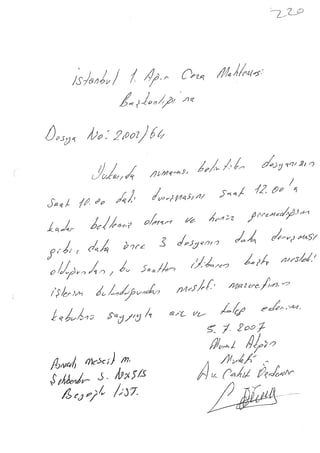 220
İstanbul 1. Ağır Ceza Mahkemesi
Başkanlığı'na
Dosya No: 2002/64
Yukarıda numarası belirtilen dosyanızın
saat 10.00 daki duruşmasını saat 12.00'a
kadar beklemiş olmam ve henüz giremediğim
gibi, daha önce 3 dosyanın daha duruşması
olduğundan, bu saatten itibaren başka mesleki
işlerim bulunduğundan mesleki mazeretimin
kabulünü saygıyla arz ve talep ederim.
5.7.2007
Murat
Müdafii
Av.
Asmalı mescit m.
Şehbender S. No
Beyoğlu İST.